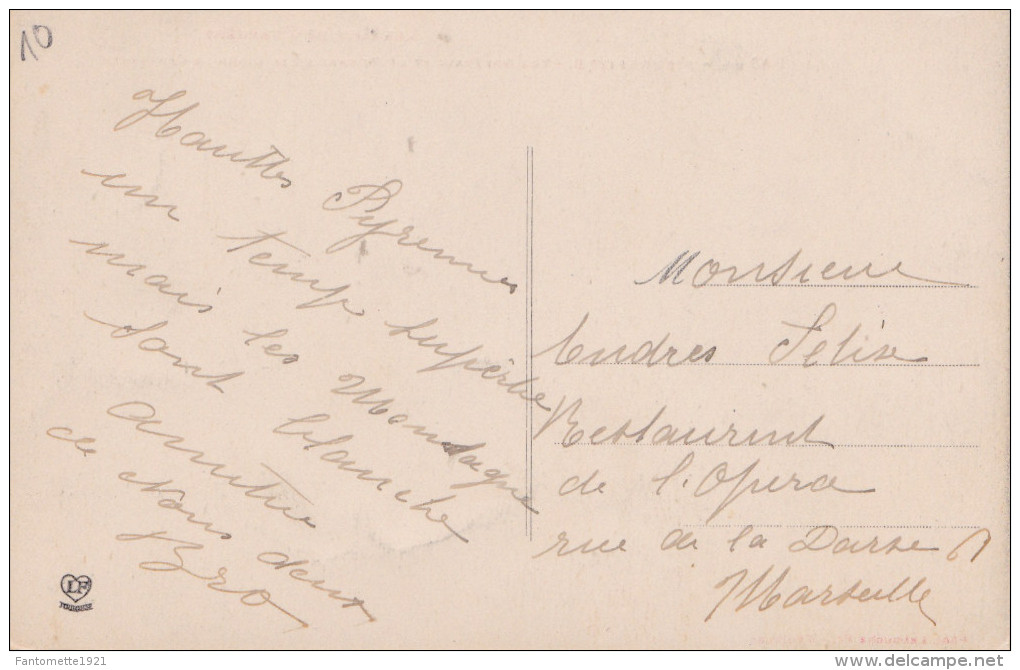 10
Hauttes Pyrennes
un temp superbe
mais les Montagne
sont blanche
amitie
de Nous deux
Bro
Monsieur
Andres Felix
Restaurent
de l'Opera
rue de la Darse
Marseille
LF
TOULOUSE
Fantomette1921
delcampe.net